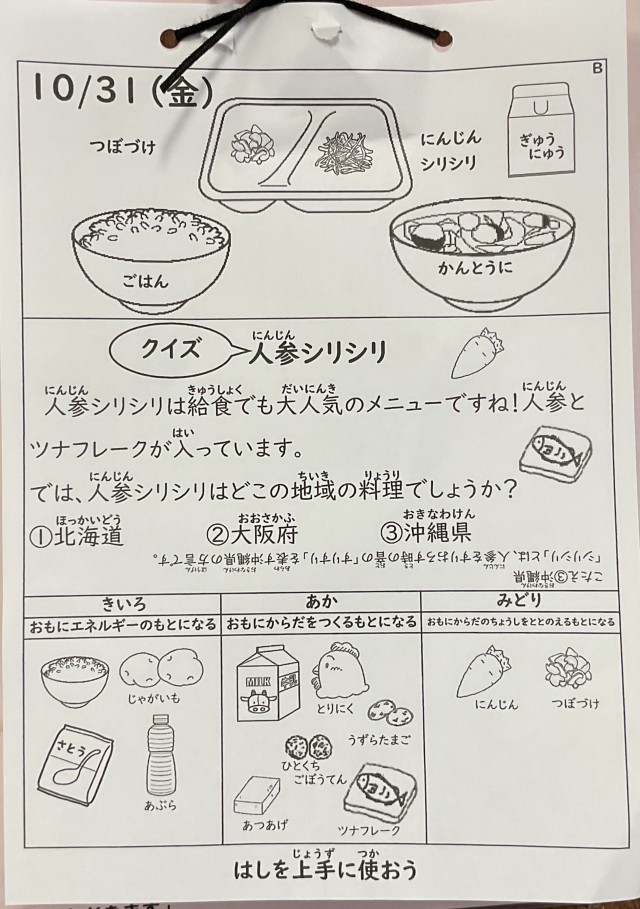 B
10/31(金)
つぼづけ
にんじん
シリシリ
ぎゅう
にゅう
ごはん
かんとうに
クイズ
にんじん
人参シリシリ
にんじん きゅうしょく だいにんき にんじん
人参シリシリは給食でも大人気のメニューですね!人参と
はい
ツナフレークが入っています。
にんじん ちいき りょうり
では、人参シリシリはどこの地域の料理でしょうか?
ほっかいどう おおさかふ おきなわけん
①北海道 ②大阪府 ③沖縄県
こたえ③沖縄県
「シリシリ」とは、人参をすりおろす時の音の「すりすり」を表す沖縄県の方言です。
きいろ あか みどり
おもにエネルギーのもとになる おもにからだをつくるもとになる おもにからだのちょうしをととのえるもとになる
じゃがいも
さとう
あぶら
MILK
牛乳
とりにく
うずらたまご
ひとくち
ごぼうてん
あつあげ
ツナフレーク
にんじん
つぼづけ
じょうず つか
はしを上手に使おう